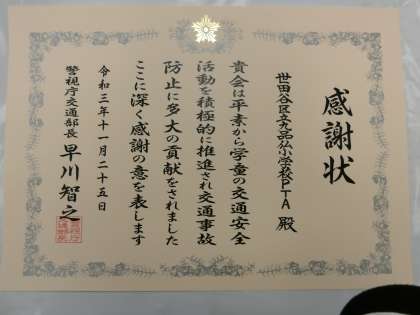 感謝状
世田谷区立九品仏小学校PTA 殿
貴会は平素から学童の交通安全
活動を積極的に推進され交通事故
防止に多大の貢献をされました
ここに深く感謝の意を表します
令和三年十一月二十五日
警視庁交通部長 早川智之